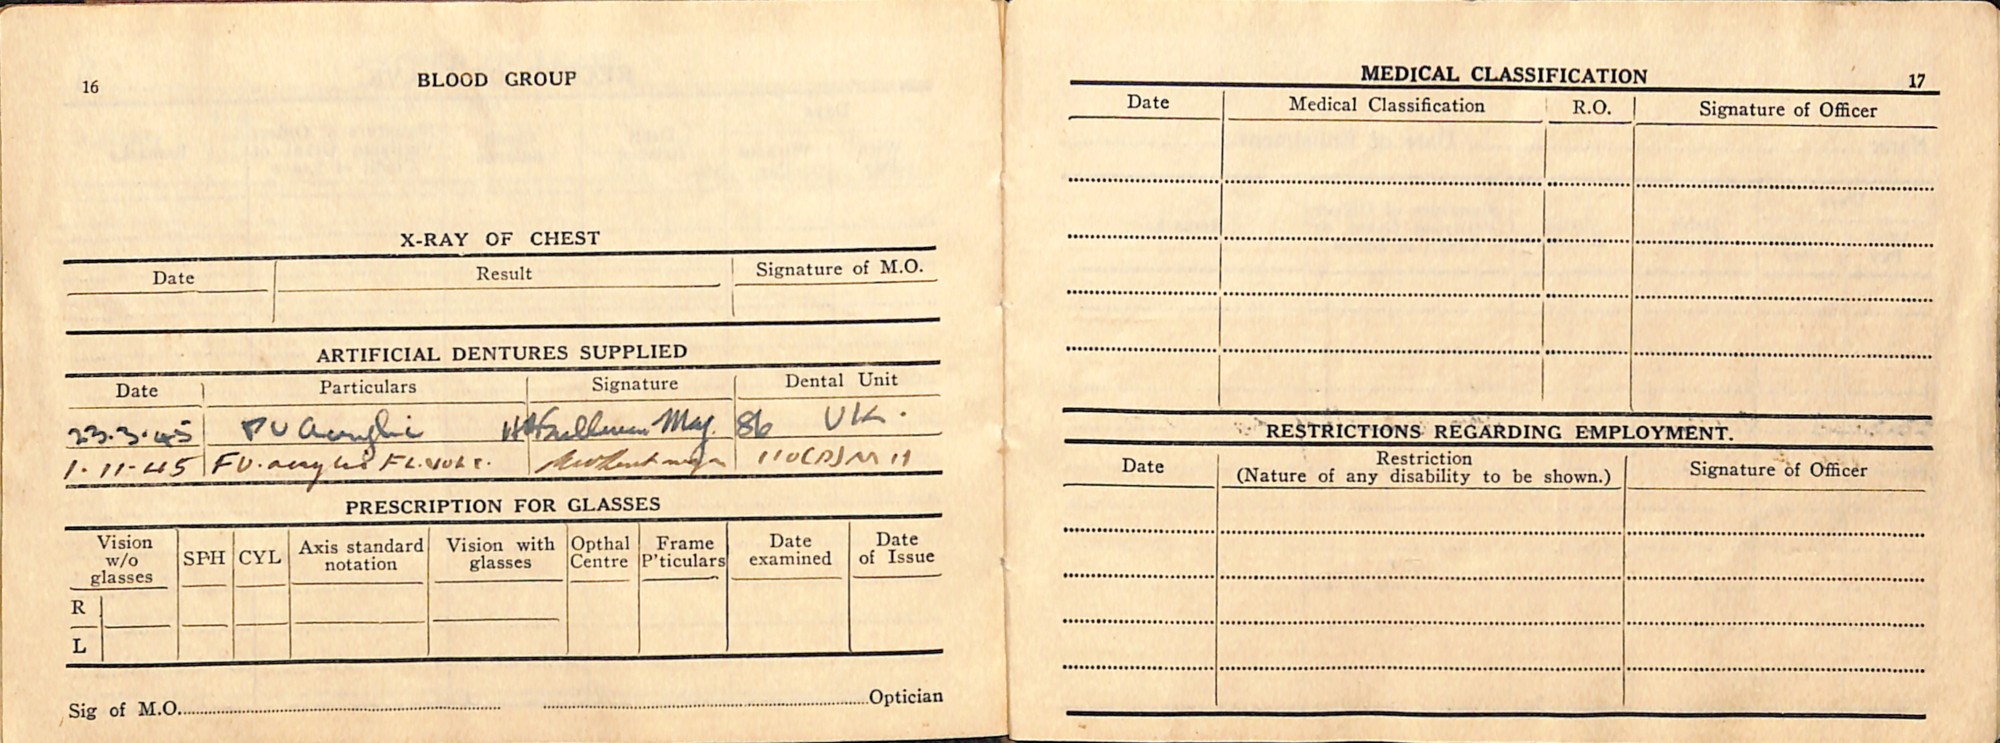 16
BLOOD GROUP
X-RAY OF CHEST
Date Result Signature of M.O.
ARTIFICIAL DENTURES SUPPLIED
Date Particulars Signature Dental Unit
23.3.45 Acrylic Maj. 86 UK.
1-11-45 FU. acrylic
PRESCRIPTION FOR GLASSES
Vision w/o glasses SPH CYL Axis standard notation Vision with glasses Opthal Centre Frame P'ticulars Date examined Date of Issue
R
L
Sig of M.O. Optician
MEDICAL CLASSIFICATION
17
Date Medical Classification R.O. Signature of Officer
RESTRICTIONS REGARDING EMPLOYMENT.
Date Restriction (Nature of any disability to be shown.) Signature of Officer